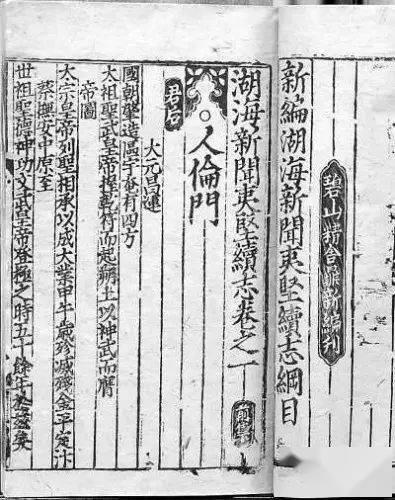 新編湖海新聞夷堅續志綱目
碧山精舍鼎新綉刊
湖海新聞夷堅續志卷之一
前集
人倫門
君后
大元昌運
國朝肇造區宇奄有四方
太祖聖武皇帝握乾符而起朔土以神武而膺
帝圖
太宗皇帝列聖相承以成大業甲午歲殄滅殘金平定汴
蔡撫安中原至
世祖聖德神功文武皇帝登極之時五十餘年於茲矣